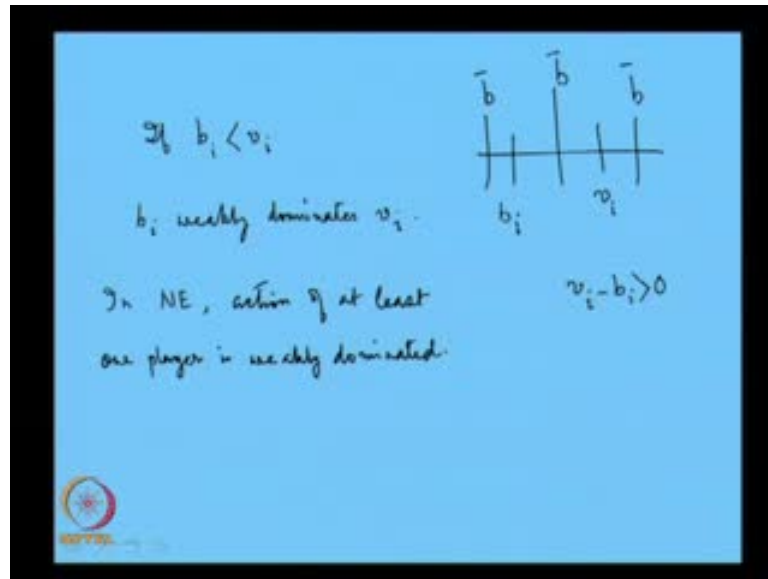 If b_i < v_i
b_i weakly dominates v_i.
In NE, action of at least
one player is weakly dominated.
b̄ b̄ b̄
b_i v_i
v_i - b_i > 0
NPTEL